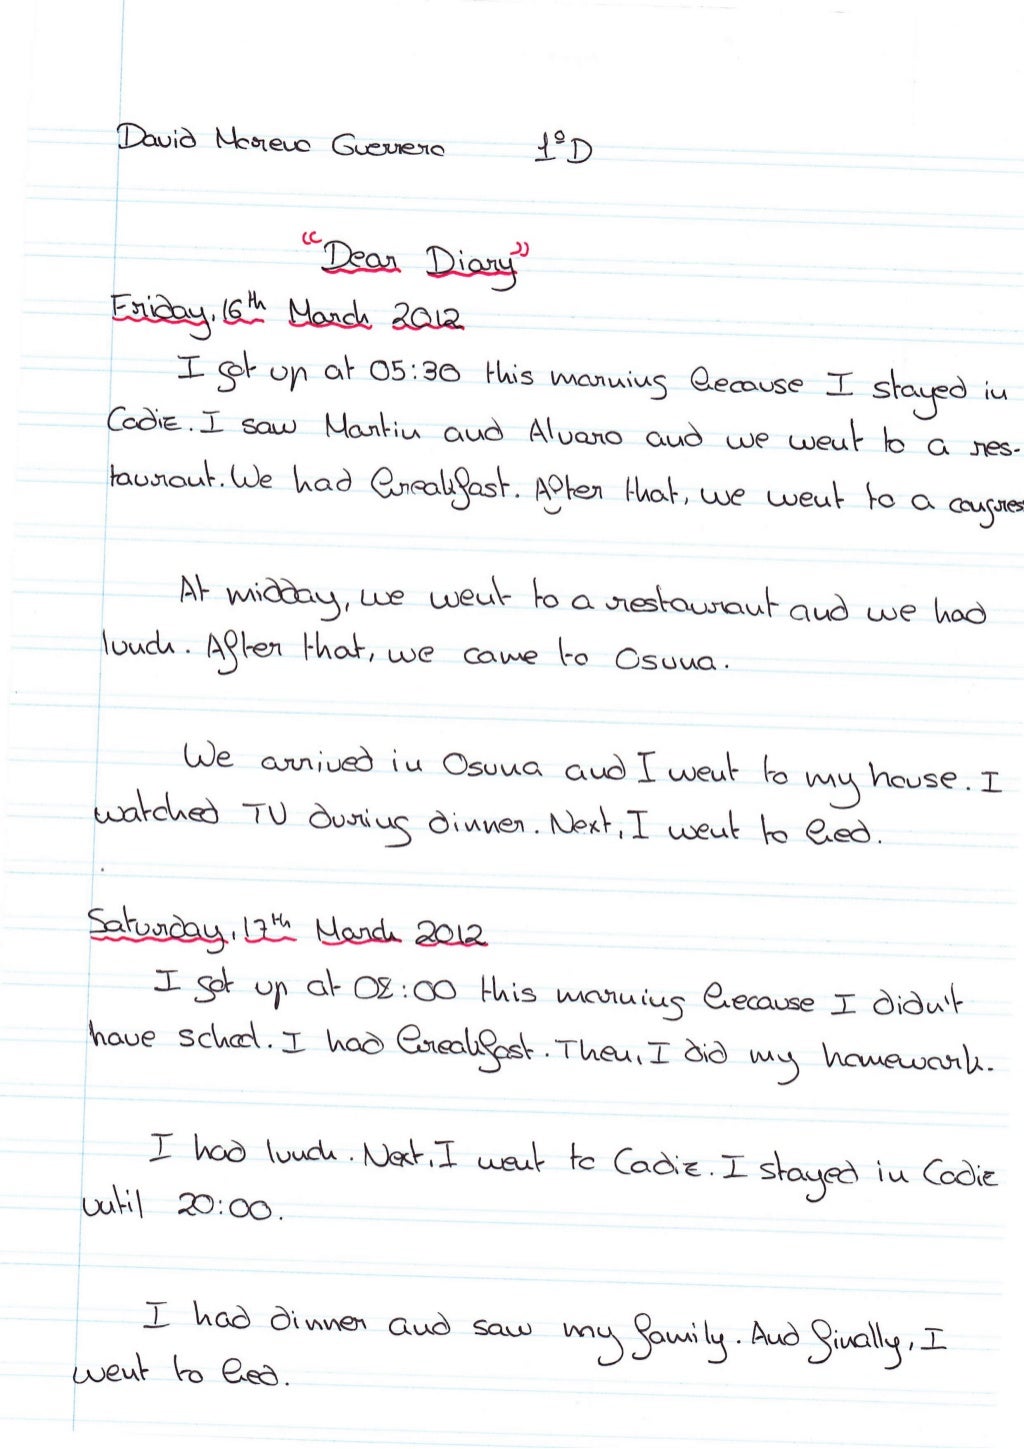 David Moreno Guerrero 1ºD
"Dear Diary"
Friday, 16th March 2012
I got up at 05:30 this morning because I stayed in
Cadiz. I saw Martin and Alvaro and we went to a res-
taurant. We had breakfast. After that, we went to a congres
At midday, we went to a restaurant and we had
lunch. After that, we came to Osuna.
We arrived in Osuna and I went to my house. I
watched TV during dinner. Next, I went to bed.
Saturday, 17th March 2012
I got up at 08:00 this morning because I didn't
have school. I had breakfast. Then, I did my homework.
I had lunch. Next, I went to Cadiz. I stayed in Cadiz
until 20:00.
I had dinner and saw my family. And finally, I
went to bed.